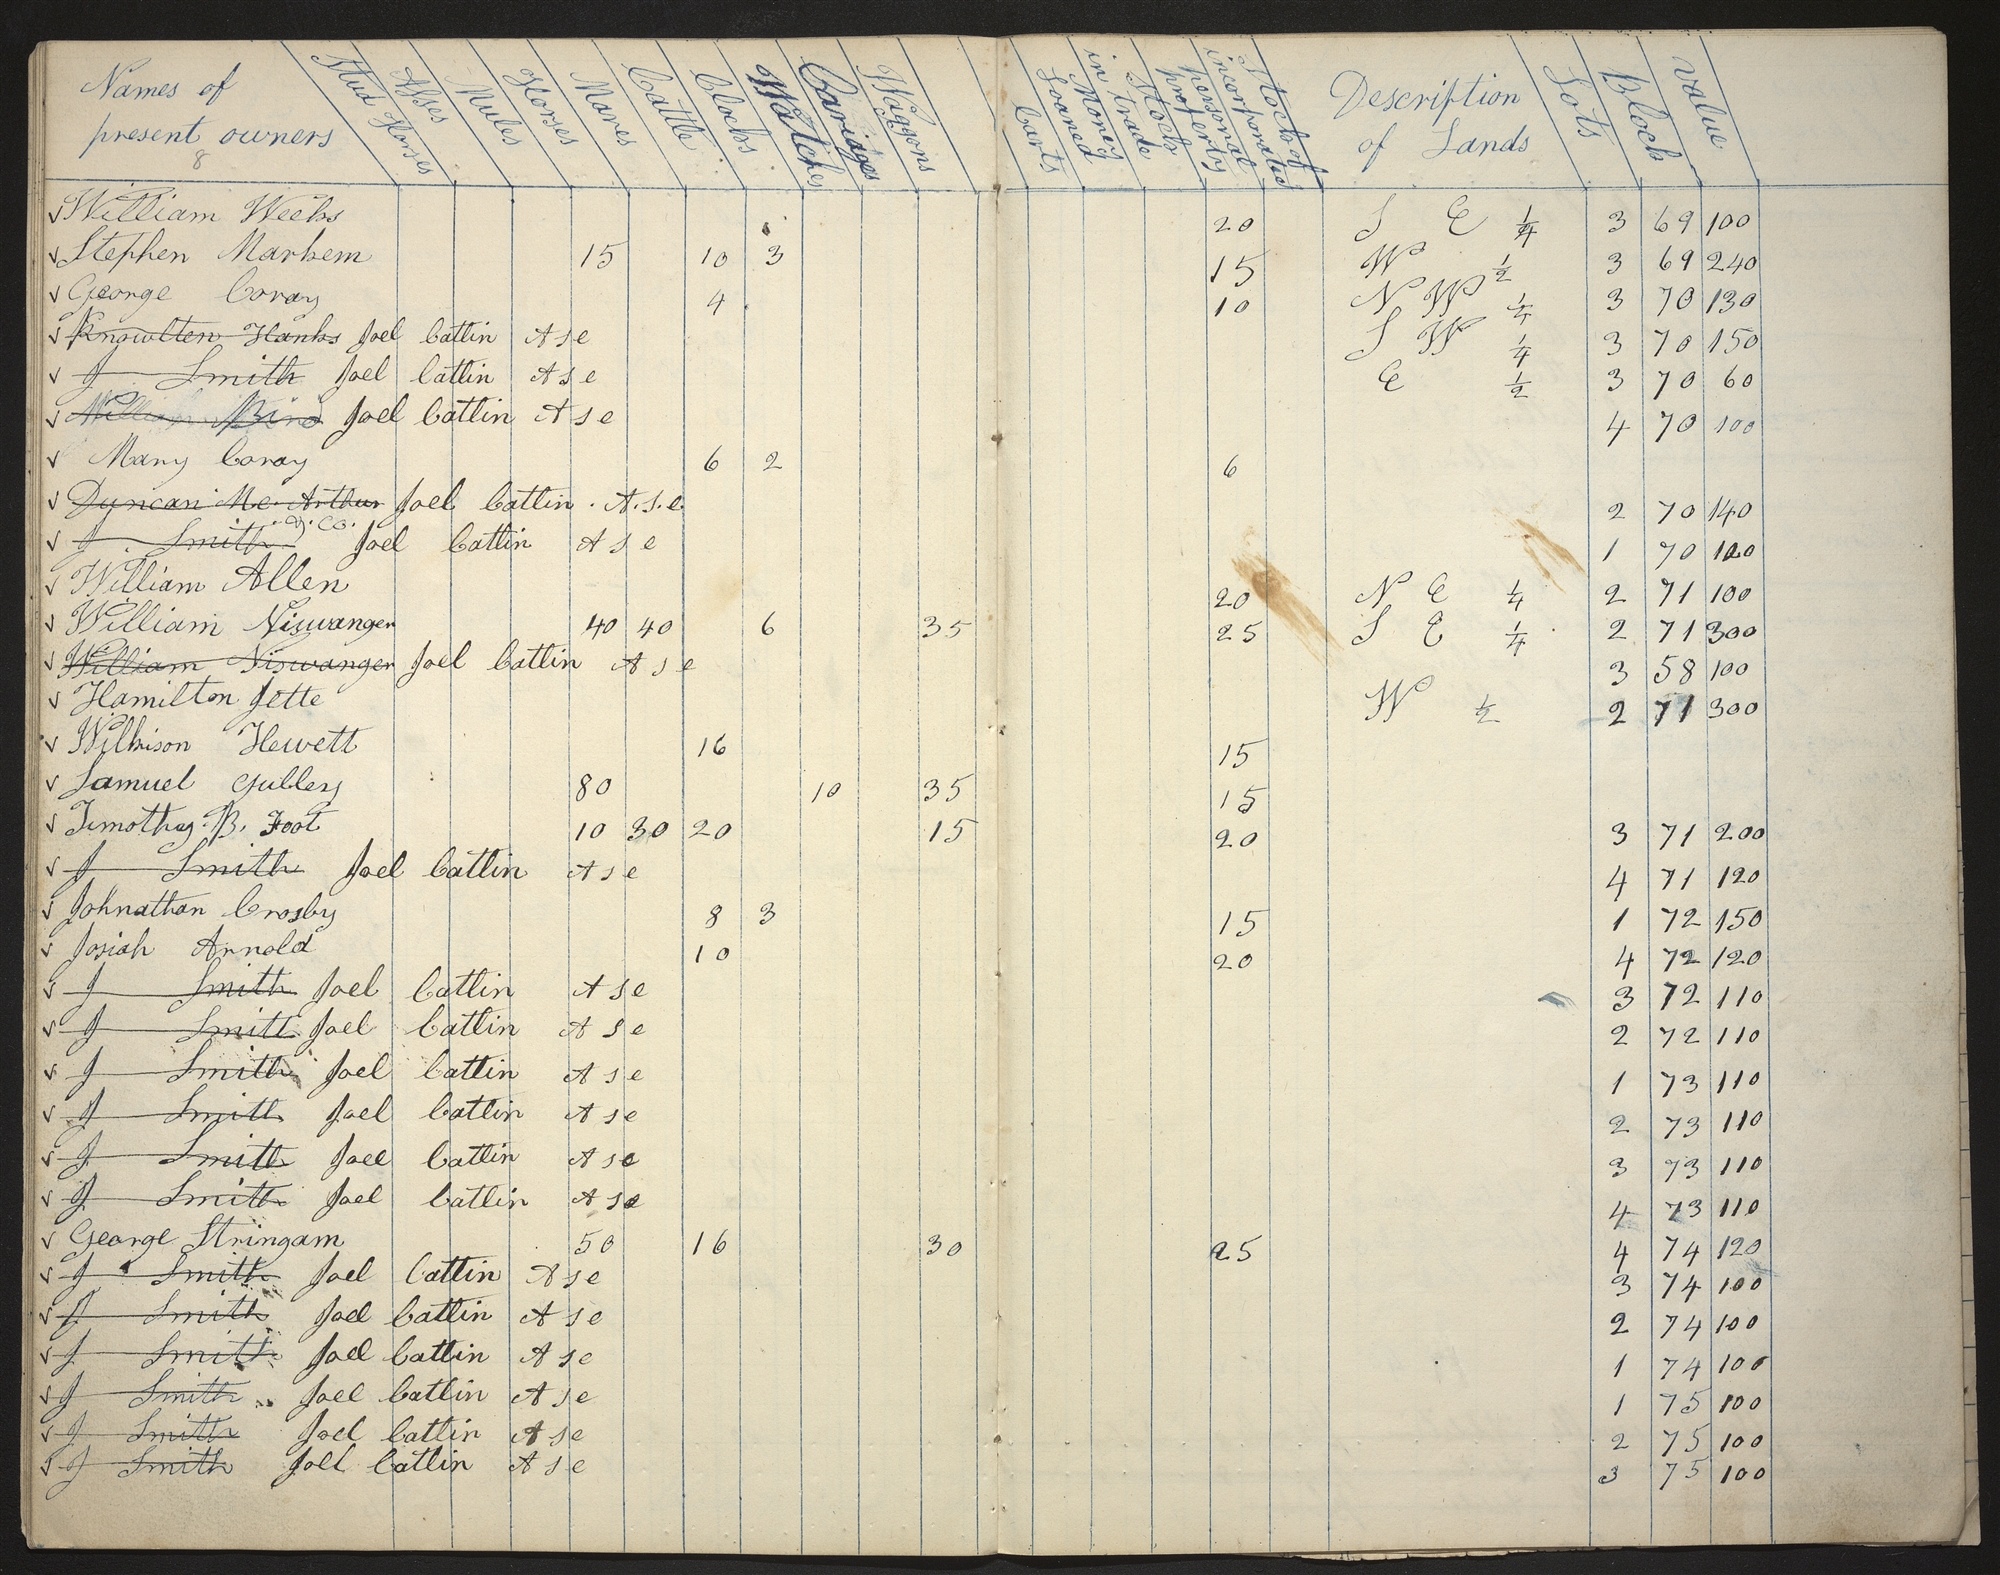 Names of present owners Stud Horses Asses Mules Horses Mares Cattle Clocks Watches Cariages Waggons Carts Money Loaned Stocks in trade personal property Stocks of incorporatic Description of Lands Lots Block value
8
√ William Weeks 20 S E 1/4 3 69 100
√ Stephen Markem 15 10 3 15 W 1/2 3 69 240
√ George Coray 4 10 N W 1/4 3 70 130
√ Knowlten Hanks Joel Catlin A s e S W 1/4 3 70 150
√ J Smith Joel Catlin A s e E 1/2 3 70 60
√ William Bird Joel Catlin A s e 4 70 100
√ Mary Coray 6 2 6
√ Duncan Mc Arthur Joel Catlin A.s.e. 2 70 140
√ J Smith & Co. Joel Catlin A s e 1 70 100
√ William Allen 20 N E 1/4 2 71 100
√ William Niswanger 40 40 6 35 25 S E 1/4 2 71 300
√ William Niswanger Joel Catlin A s e 3 58 100
√ Hamilton Jette W 1/2 2 71 300
√ Wilkison Hewett 16 15
√ Samuel Gulley 80 10 35 15
√ Timothy B. Foot 10 30 20 15 20 3 71 200
√ J Smith Joel Catlin A s e 4 71 120
√ Johnathan Crosby 8 3 15 1 72 150
√ Josiah Arnold 10 20 4 72 120
√ J Smith Joel Catlin A s e 3 72 110
√ J Smith Joel Catlin A s e 2 72 110
√ J Smith Joel Catlin A s e 1 73 110
√ J Smith Joel Catlin A s e 2 73 110
√ J Smith Joel Catlin A s e 3 73 110
√ J Smith Joel Catlin A s e 4 73 110
√ George Stringam 50 16 30 25 4 74 120
√ J Smith Joel Catlin A s e 3 74 100
√ J Smith Joel Catlin A s e 2 74 100
√ J Smith Joel Catlin A s e 1 74 100
√ J Smith Joel Catlin A s e 1 75 100
√ J Smith Joel Catlin A s e 2 75 100
√ J Smith Joel Catlin A s e 3 75 100